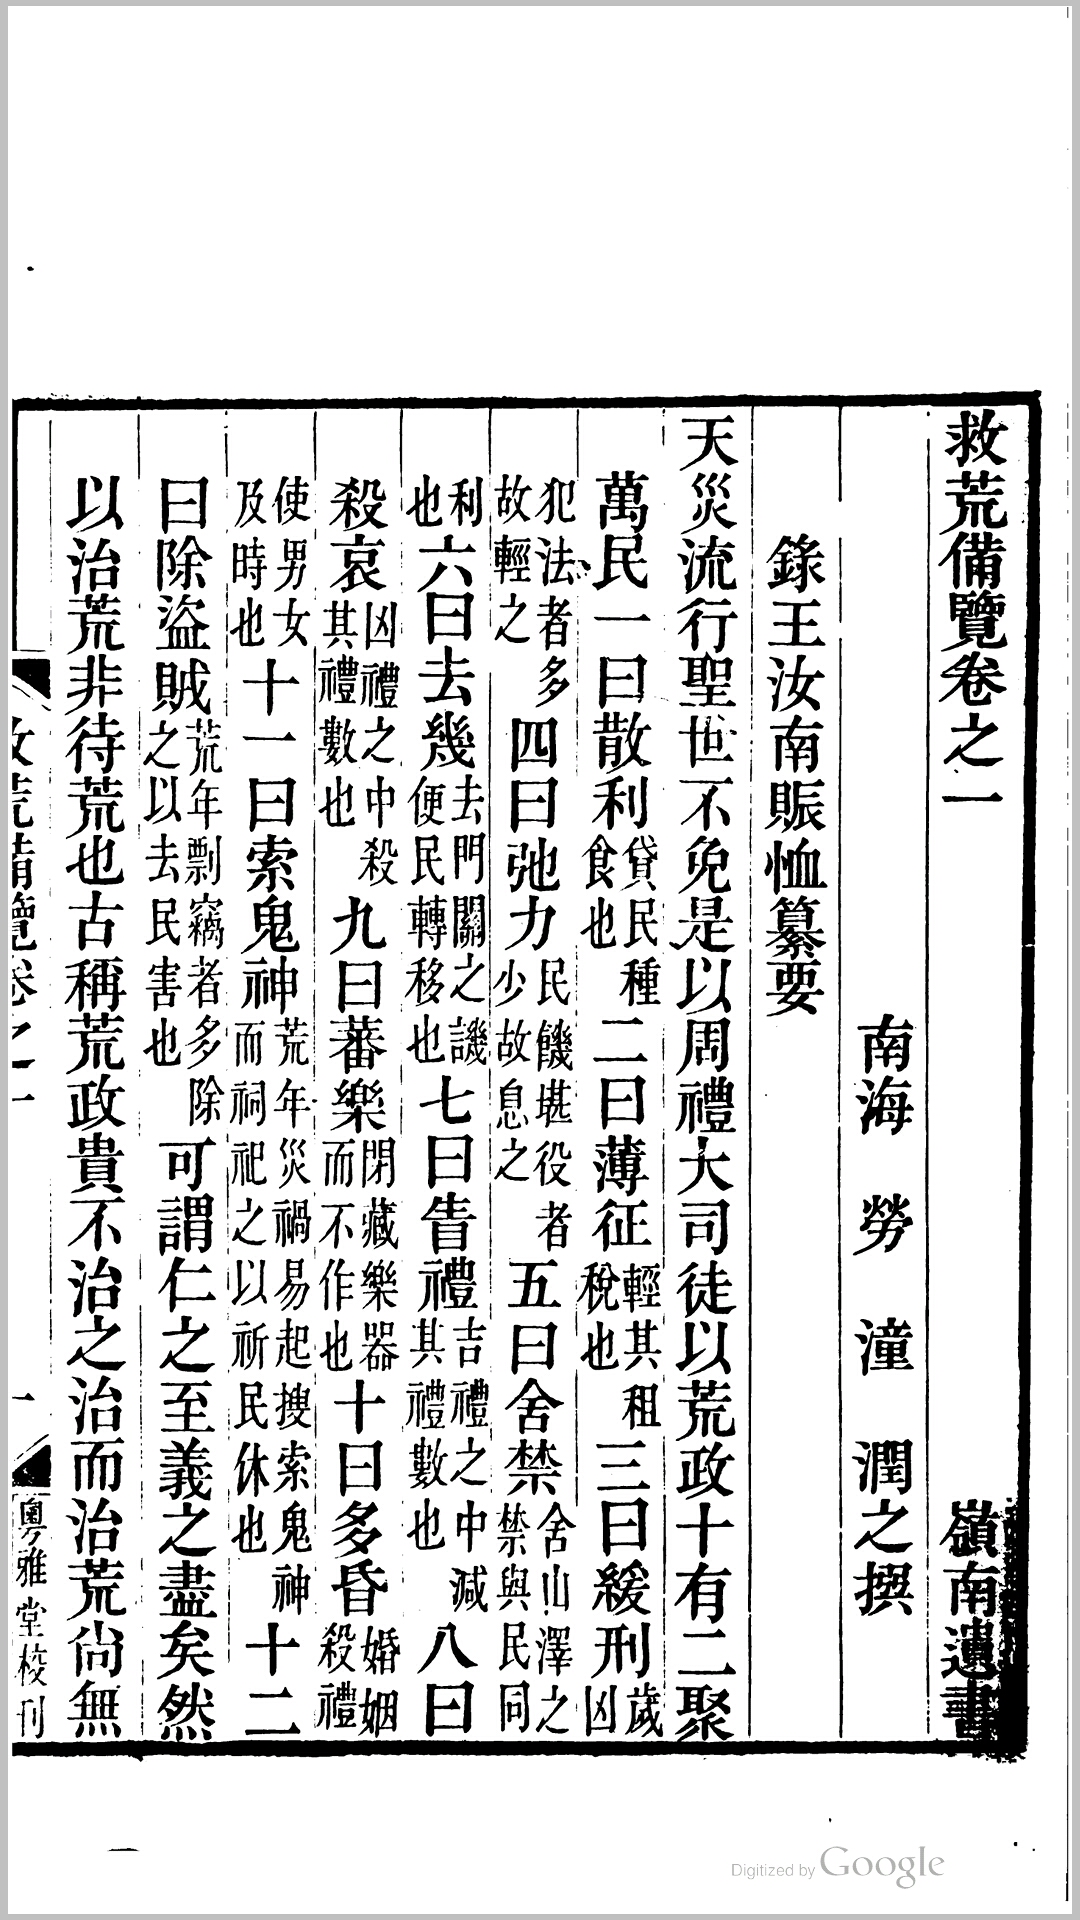 救荒備覽卷之一 嶺南遺書
南海 勞 潼 潤之撰
錄王汝南賑恤纂要
天災流行聖世不免是以周禮大司徒以荒政十有二聚
萬民一曰散利貸民種食也二曰薄征輕其租稅也三曰緩刑歲凶
犯法者多故輕之四曰弛力民饑堪役者少故息之五曰舍禁舍山澤之禁與民同
利也六曰去幾去門關之譏便民轉移也七曰眚禮吉禮之中減其禮數也八曰
殺哀凶禮之中殺其禮數也九曰蕃樂閉藏樂器而不作也十曰多昏婚姻殺禮
使男女及時也十一曰索鬼神荒年災禍易起搜索鬼神而祠祀之以祈民休也十二
曰除盜賊荒年剽竊者多除之以去民害也可謂仁之至義之盡矣然
以治荒非待荒也古稱荒政貴不治之治而治荒尚無
救荒備覽卷之一 一 粵雅堂校刊
Digitized by Google